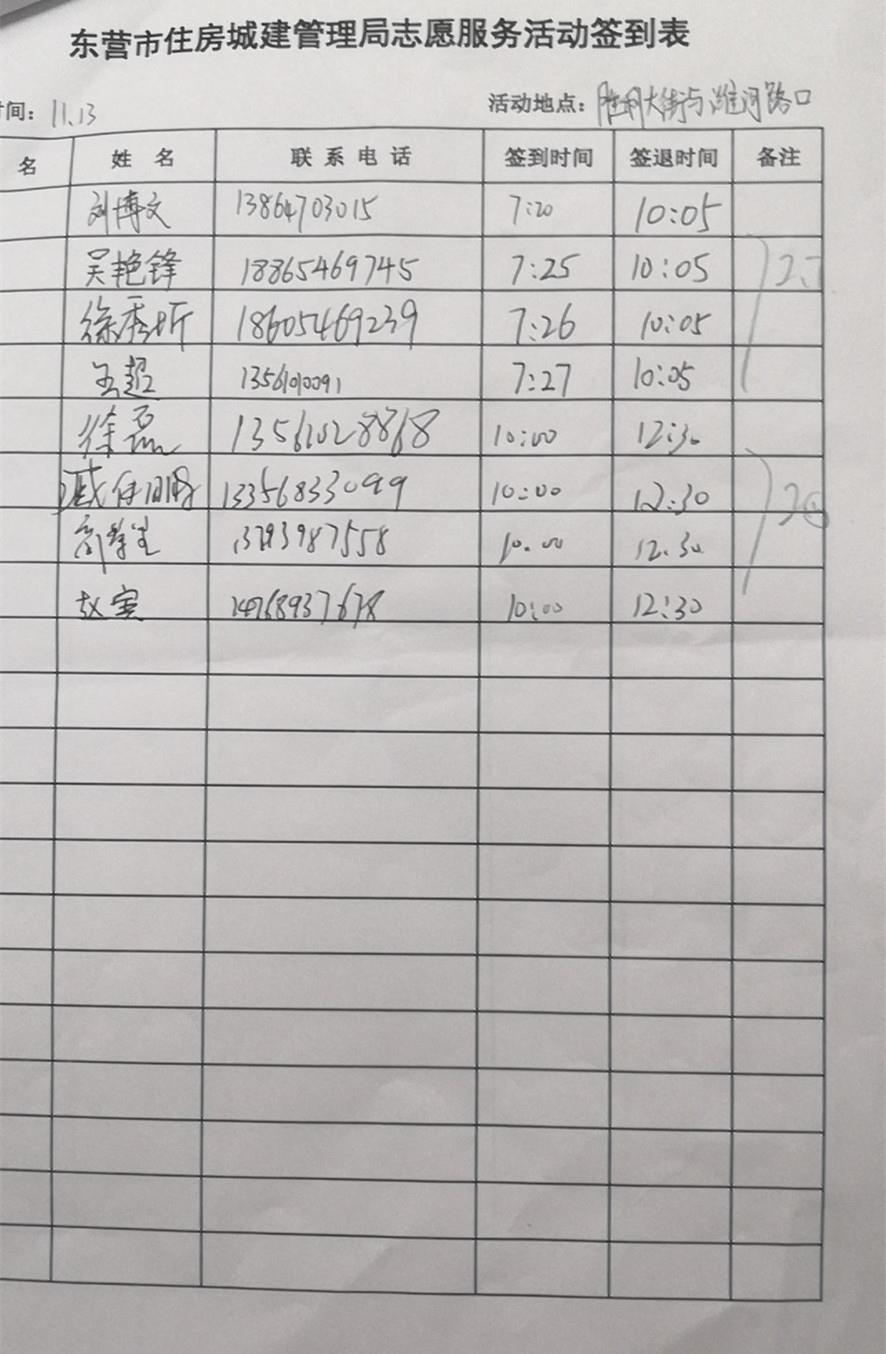 东营市住房城建管理局志愿服务活动签到表
时间：11.13 活动地点：胜利大街与潍河路口
名 姓名 联系电话 签到时间 签退时间 备注
刘博文 13864703015 7:20 10:05
吴艳锋 18865469745 7:25 10:05
徐秀圻 18605469239 7:26 10:05
王超 13561010091 7:27 10:05
徐磊 13561028868 10:00 12:30
13356833099 10:00 12:30
10:00 12:30
赵寅 10:00 12:30